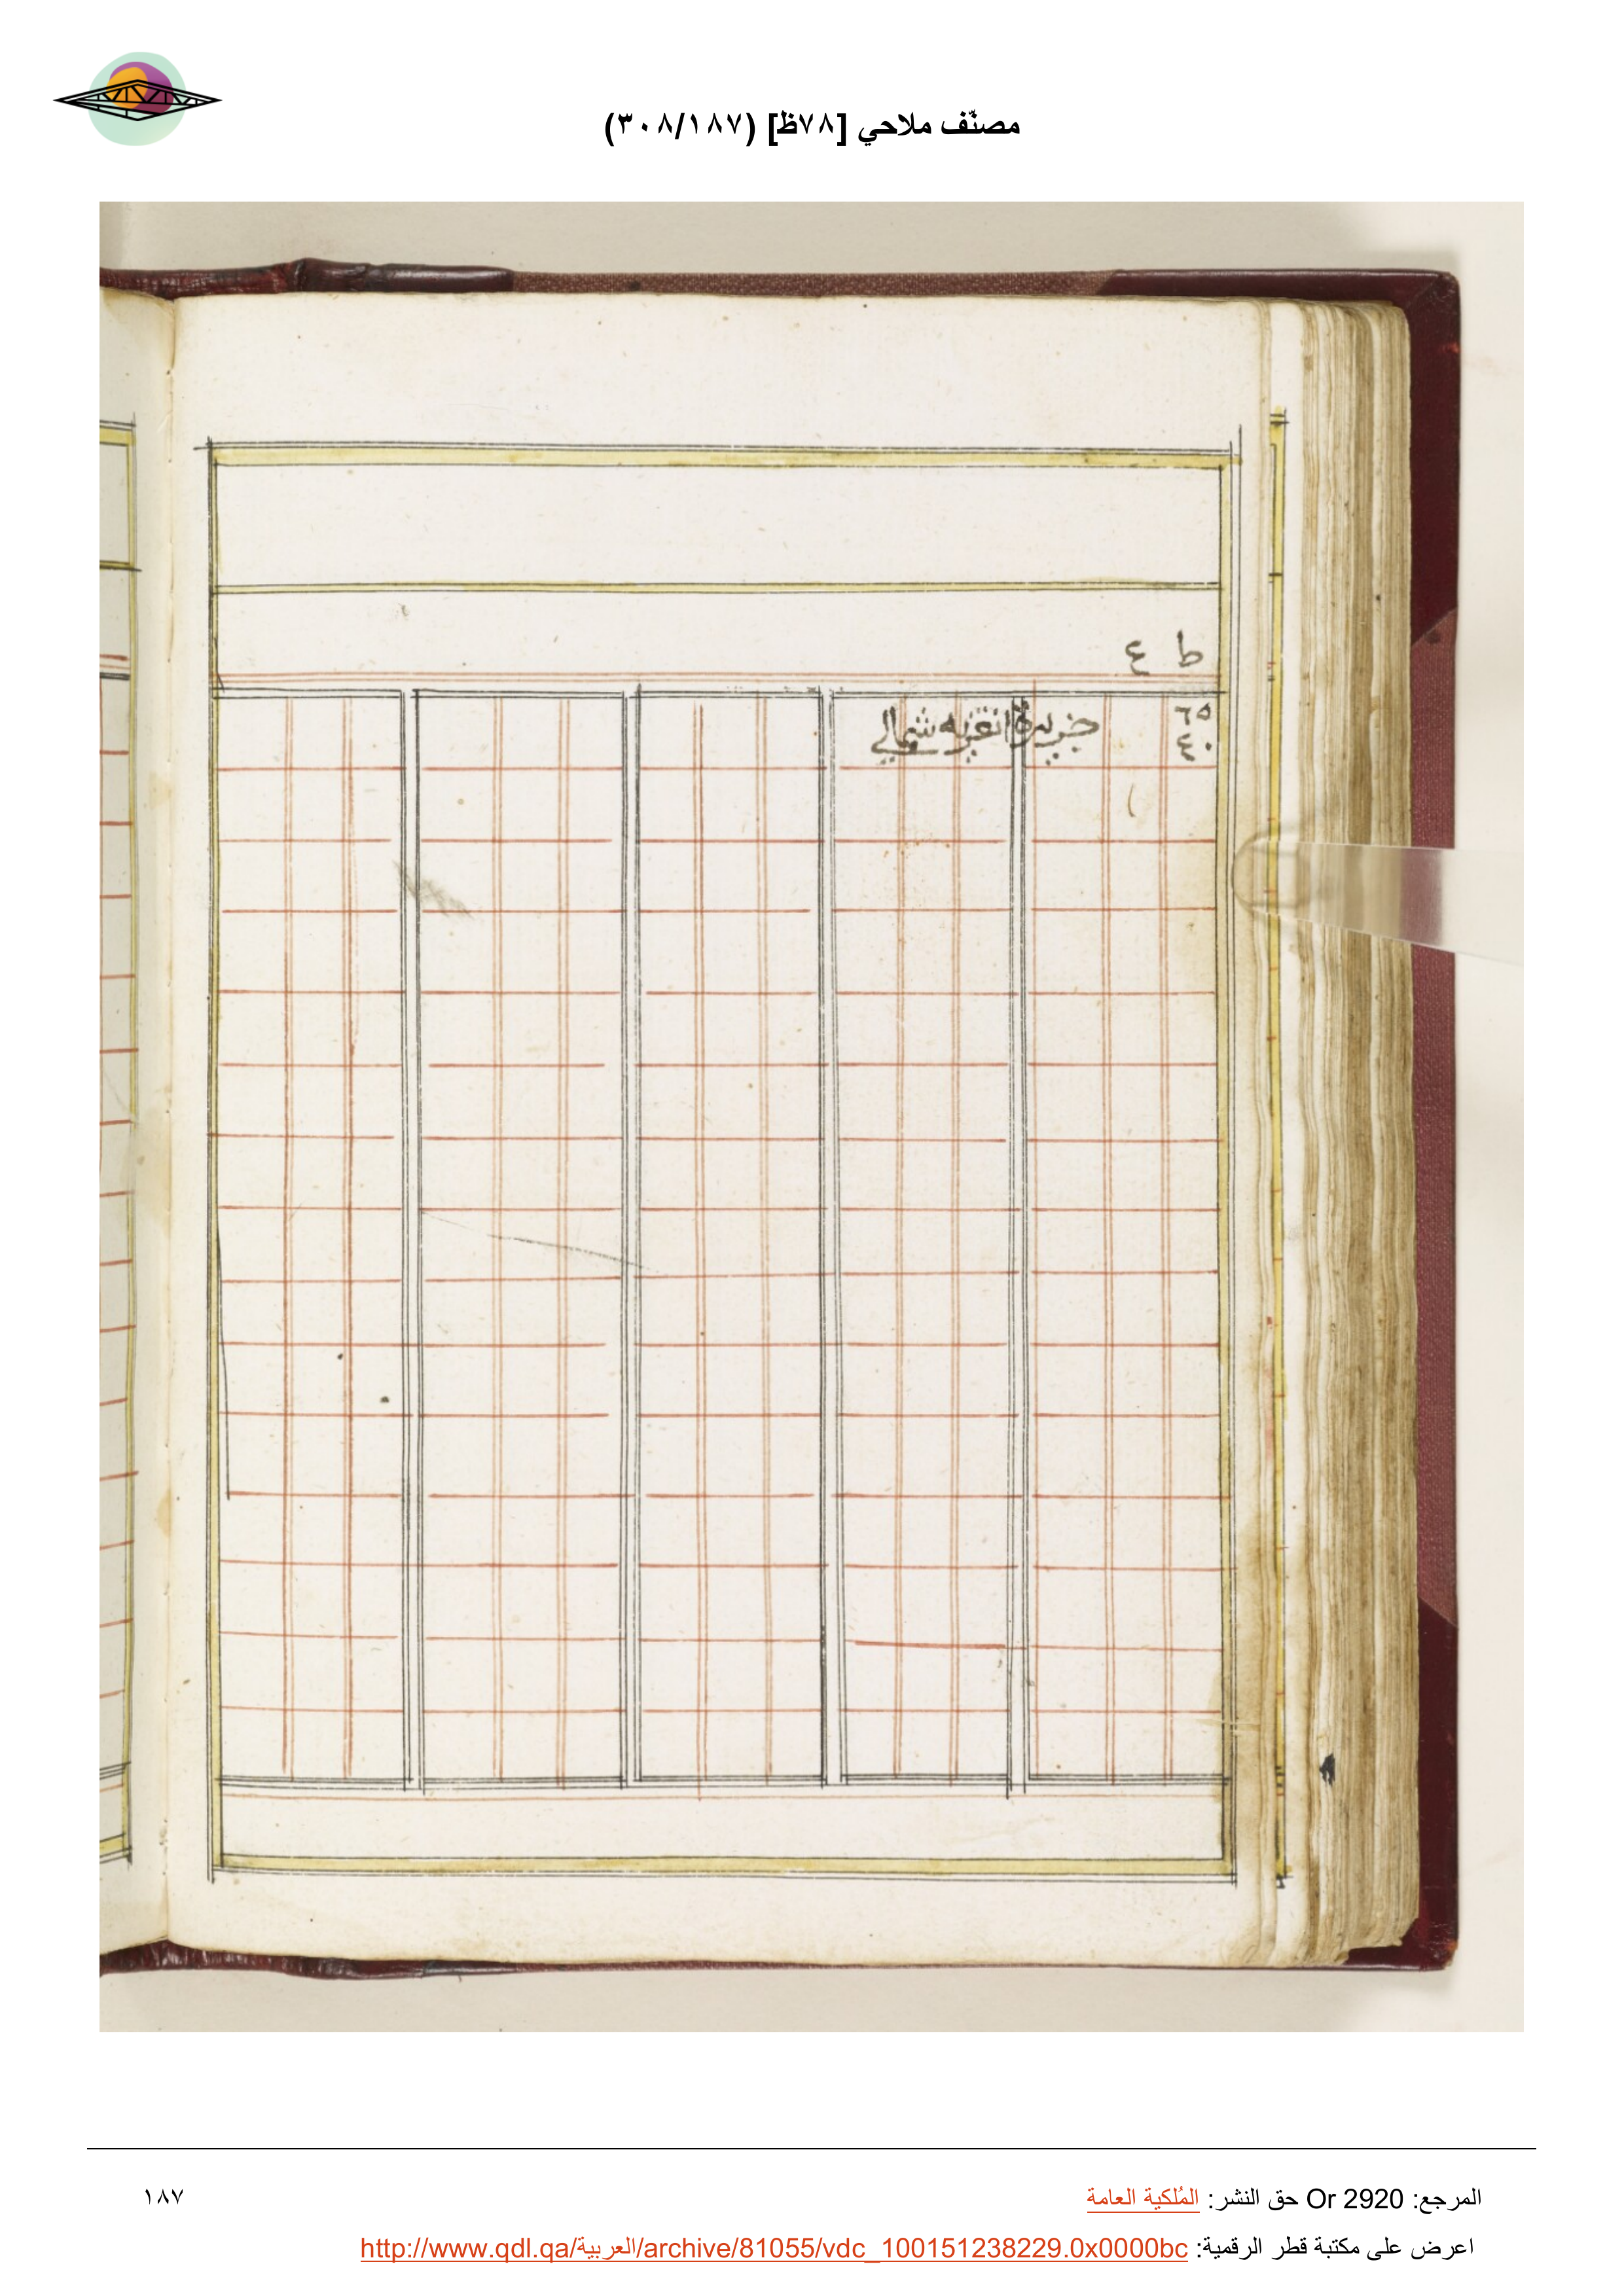 مصنّف ملاحي [٧٨ظ] (٣٠٨/١٨٧)
ط ٤
٦٥ جزيرة انغزيه شمالي
٤٠
المرجع: Or 2920 حق النشر: المُلكية العامة
١٨٧
اعرض على مكتبة قطر الرقمية: http://www.qdl.qa/العربية/archive/81055/vdc_100151238229.0x0000bc